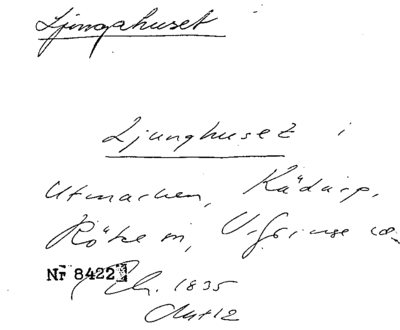 Ljungahuset
Ljunghuset i
Utmarken, Kädarp,
Röke sn, V. Göinge
Nr 8422
1835